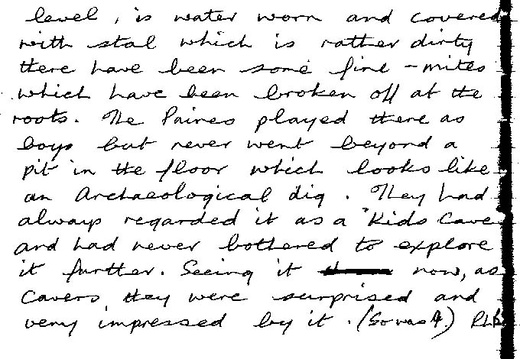 level, is water worn and covered
with stal which is rather dirty
there have been some fine -mites
which have been broken off at the
roots. The Paines played there as
boys but never went beyond a
pit in the floor which looks like
an Archaeological dig. They had
always regarded it as a "Kids Cave
and had never bothered to explore
it further. Seeing it now, as
Cavers they were surprised and
very impressed by it. (So was I.)